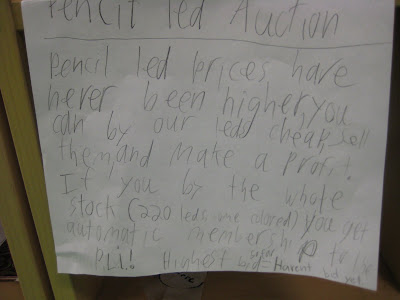 Pencil led Auction
Pencil led prices have
never been higher, you
can by our leds cheap, sell
them, and make a profit!
If you by the whole
stock (220 leds, one colored) you get
automatic membership to
P.L.I.! Highest
bid